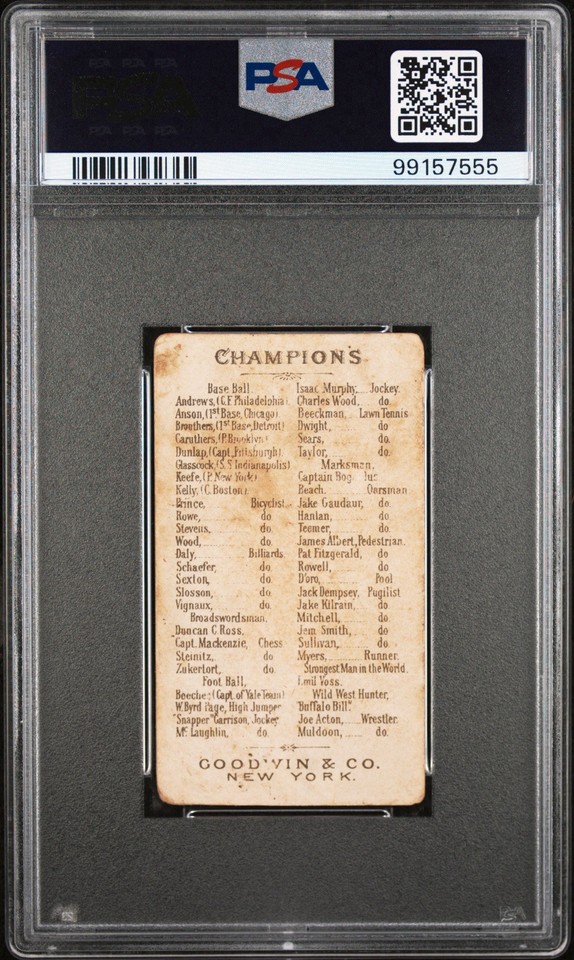 PSA
99157555
CHAMPIONS
Base Ball.
Andrews, (C.F Philadelphia)
Anson, (1st Base, Chicago)
Brouthers, (1st Base, Detroit)
Caruthers, (P. Brooklyn)
Dunlap, (Capt. Pittsburgh)
Glasscock, (S. S. Indianapolis)
Keefe, (P. New York)
Kelly, (C. Boston)
Prince, Bicyclist.
Rowe, do.
Stevens, do.
Wood, do.
Daly, Billiards.
Schaefer, do.
Sexton, do.
Slosson, do.
Vignaux, do.
Broadswordsman.
Duncan C. Ross.
Capt. Mackenzie, Chess
Steinitz, do
Zukertort, do.
Foot Ball,
Beecher (Capt. of Yale Team)
W. Byrd Page, High Jumper
"Snapper" Garrison, Jockey
Mc Laughlin, do.
Isaac Murphy, Jockey.
Charles Wood, do.
Beeckman, Lawn Tennis
Dwight, do
Sears, do.
Taylor, do.
Marksman.
Captain
Beach, Oarsman
Jake Gaudaur, do.
Hanlan, do.
Teemer, do.
James Albert, Pedestrian.
Pat Fitzgerald, do.
Rowell, do.
D'oro, Pool
Jack Dempsey, Pugilist
Jake Kilrain, do.
Mitchell, do.
Jem Smith, do.
Sullivan, do.
Myers, Runner.
Strongest Man in the World.
Emil Voss.
Wild West Hunter,
"Buffalo Bill."
Joe Acton, Wrestler.
Muldoon, do.
GOODWIN & CO.
NEW YORK.